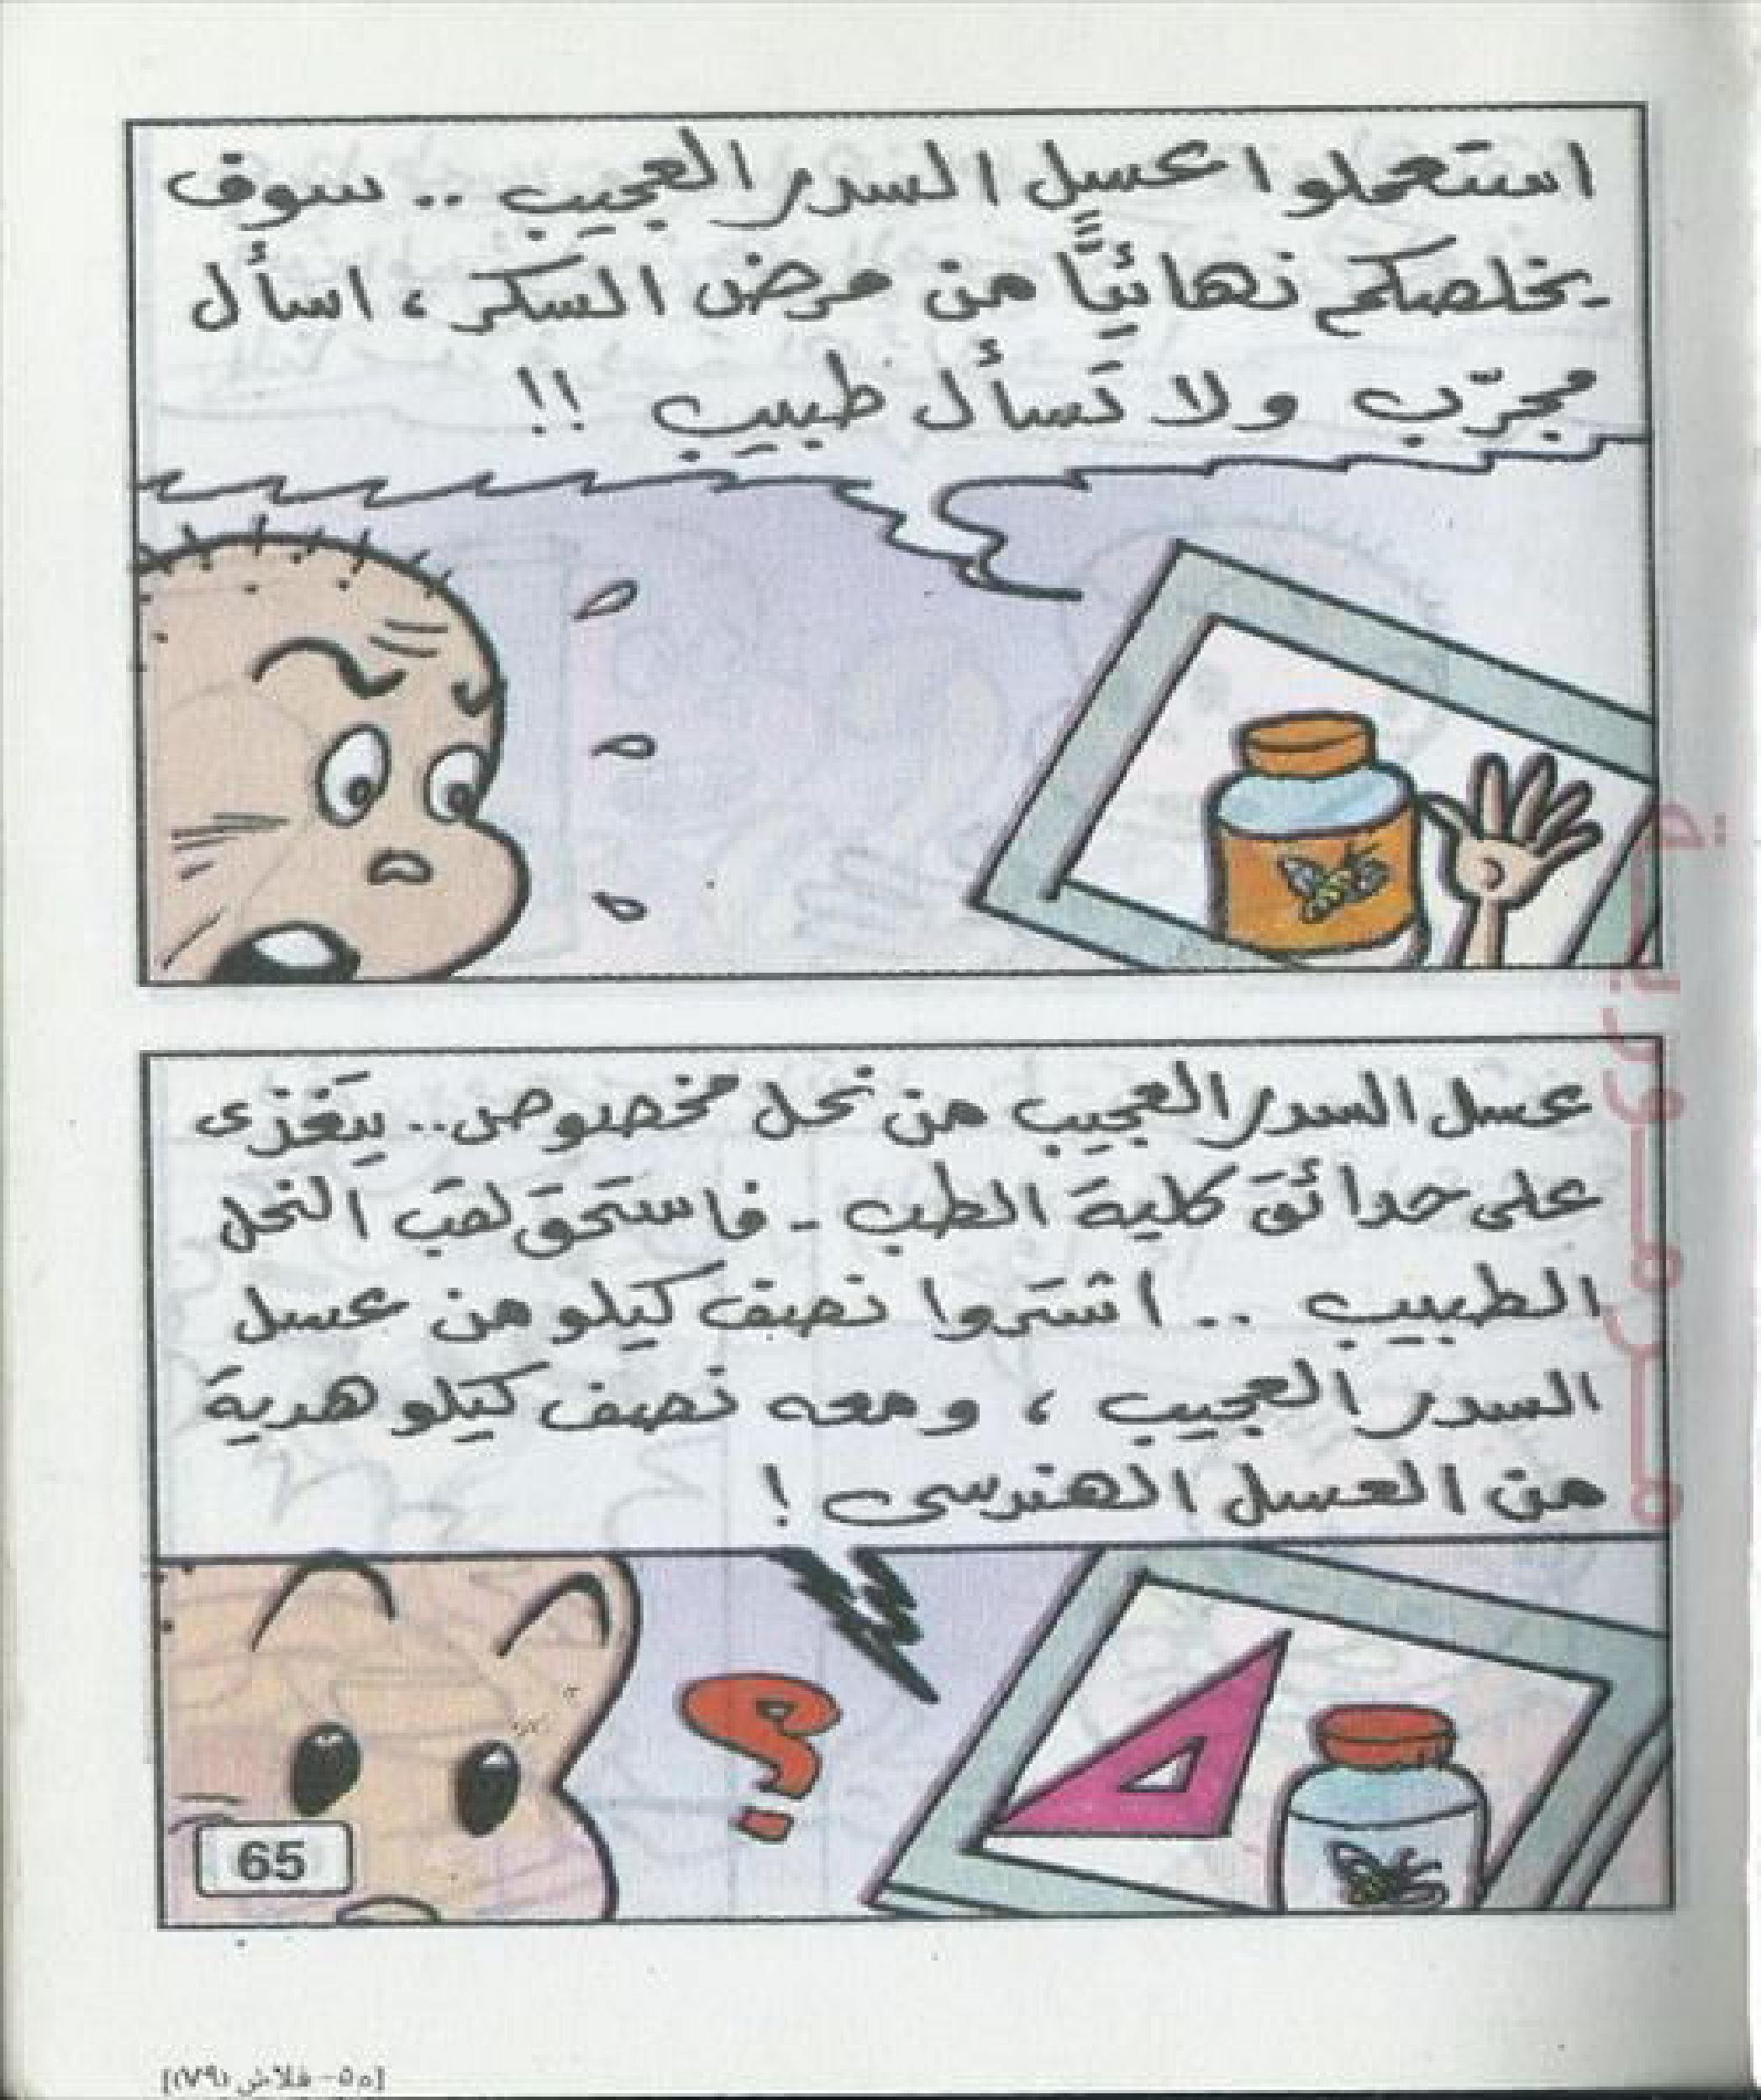 استعملوا عسل السدر العجيب .. سوف
يخلصكم نهائيًّا من مرض السكر ، اسأل
مجرّب ولا تسأل طبيب !!
عسل السدر العجيب من نحل مخصوص.. يتغذى
على حدائق كلية الطب - فاستحق لقب النحل
الطبيب .. اشتروا نصف كيلو من عسل
السدر العجيب ، ومعه نصف كيلو هدية
من العسل الهندسى !
؟
65
[م٥ - فلاش (٧٩)]